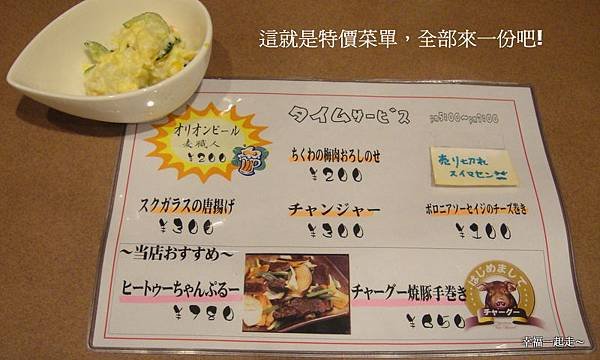 這就是特價菜單，全部來一份吧!
タイムサービス
pm5:00～pm7:00
オリオンビール
麦職人
¥200
ちくわの梅肉おろしのせ
¥200
売り切れ
スイマセン
スクガラスの唐揚げ
¥300
チャンジャー
¥300
ボロニアソーセイジのチーズ巻き
¥100
～当店おすすめ～
ヒートゥーちゃんぷるー
¥780
チャーグー焼豚手巻き
¥650
はじめまして
チャーグー
幸福一起走～